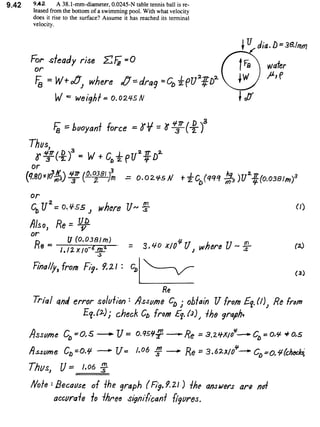 9.42
9.42 A 38.1-mm-diameter, 0.0245-N table tennis ball is re-
leased from the bottom of a swimming pool. With what velocity
does it rise to the surface? Assume it has reached its terminal
velocity.
U dia. D=38.1mm
For steady rise ΣF_z=0
or
F_B = W+𝒟, where 𝒟=drag = C_D ½ρU² π/4 D²
W = weight = 0.0245 N
F_B
water
W
μ, ρ
𝒟
F_B = buoyant force = γV = γ 4π/3 (D/2)³
Thus,
γ 4π/3 (D/2)³ = W + C_D ½ρU² π/4 D²
or
(9.80×10³ N/m³) 4π/3 (0.0381/2)³m = 0.0245N + ½C_D(999 kg/m³)U² π/4 (0.0381m)²
or
C_D U² = 0.455, where U~ m/s (1)
Also, Re = UD/ν
or
Re = U(0.0381m) / 1.12×10⁻⁶ m²/s = 3.40 ×10⁴ U, where U~ m/s (2)
Finally, from Fig. 9.21: C_D (3)
Re
Trial and error solution: Assume C_D; obtain U from Eq.(1), Re from
Eq.(2); check C_D from Eq.(3), the graph.
Assume C_D=0.5 → U= 0.954 m/s → Re = 3.24×10⁴ → C_D = 0.4 ≠ 0.5
Assume C_D=0.4 → U= 1.06 m/s → Re = 3.62×10⁴ → C_D=0.4 (checks)
Thus, U = 1.06 m/s
Note: Because of the graph (Fig. 9.21) the answers are not
accurate to three significant figures.